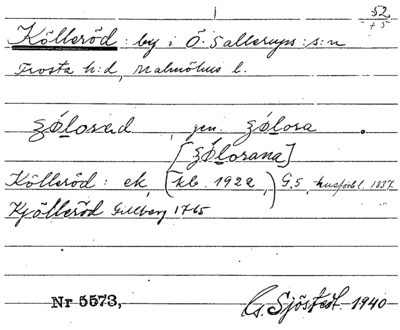 52
+5
Kölleröd: by i Ö. Sallerups s:n
Frosta h:d, Malmöhus l.
zǿlosed, gen. zǿlosa.
[zǿlosana]
Kölleröd: ek, (kb. 1922,) G.S, husförhl. 1837
Kjölleröd Gillberg 1765
Nr 5573,
G. Sjöstedt. 1940